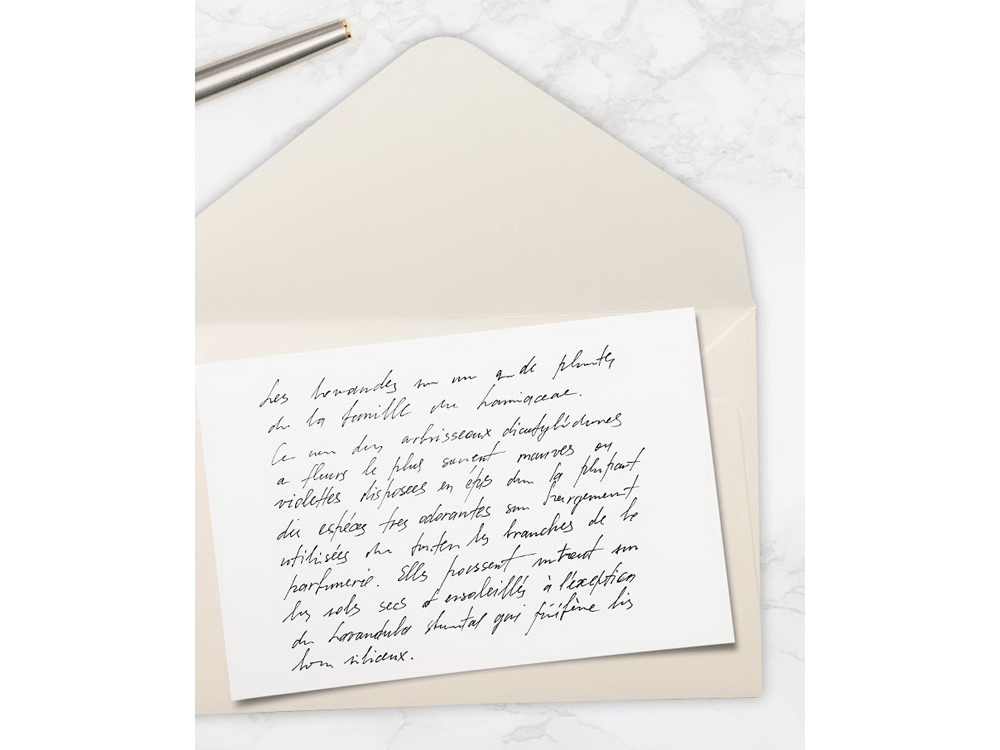 Les
de la famille de Lamiaceae.
Ce arbrisseaux dicotylédones
a fleurs le plus souvent mauves ou
violettes disposées en épis la plupart
des espèces tres odorantes largement
utilisées les branches de la
parfumerie. Elles poussent surtout sur
les sols secs et ensoleillés à l'exception
du Lavandula qui préfère les
silicieux.